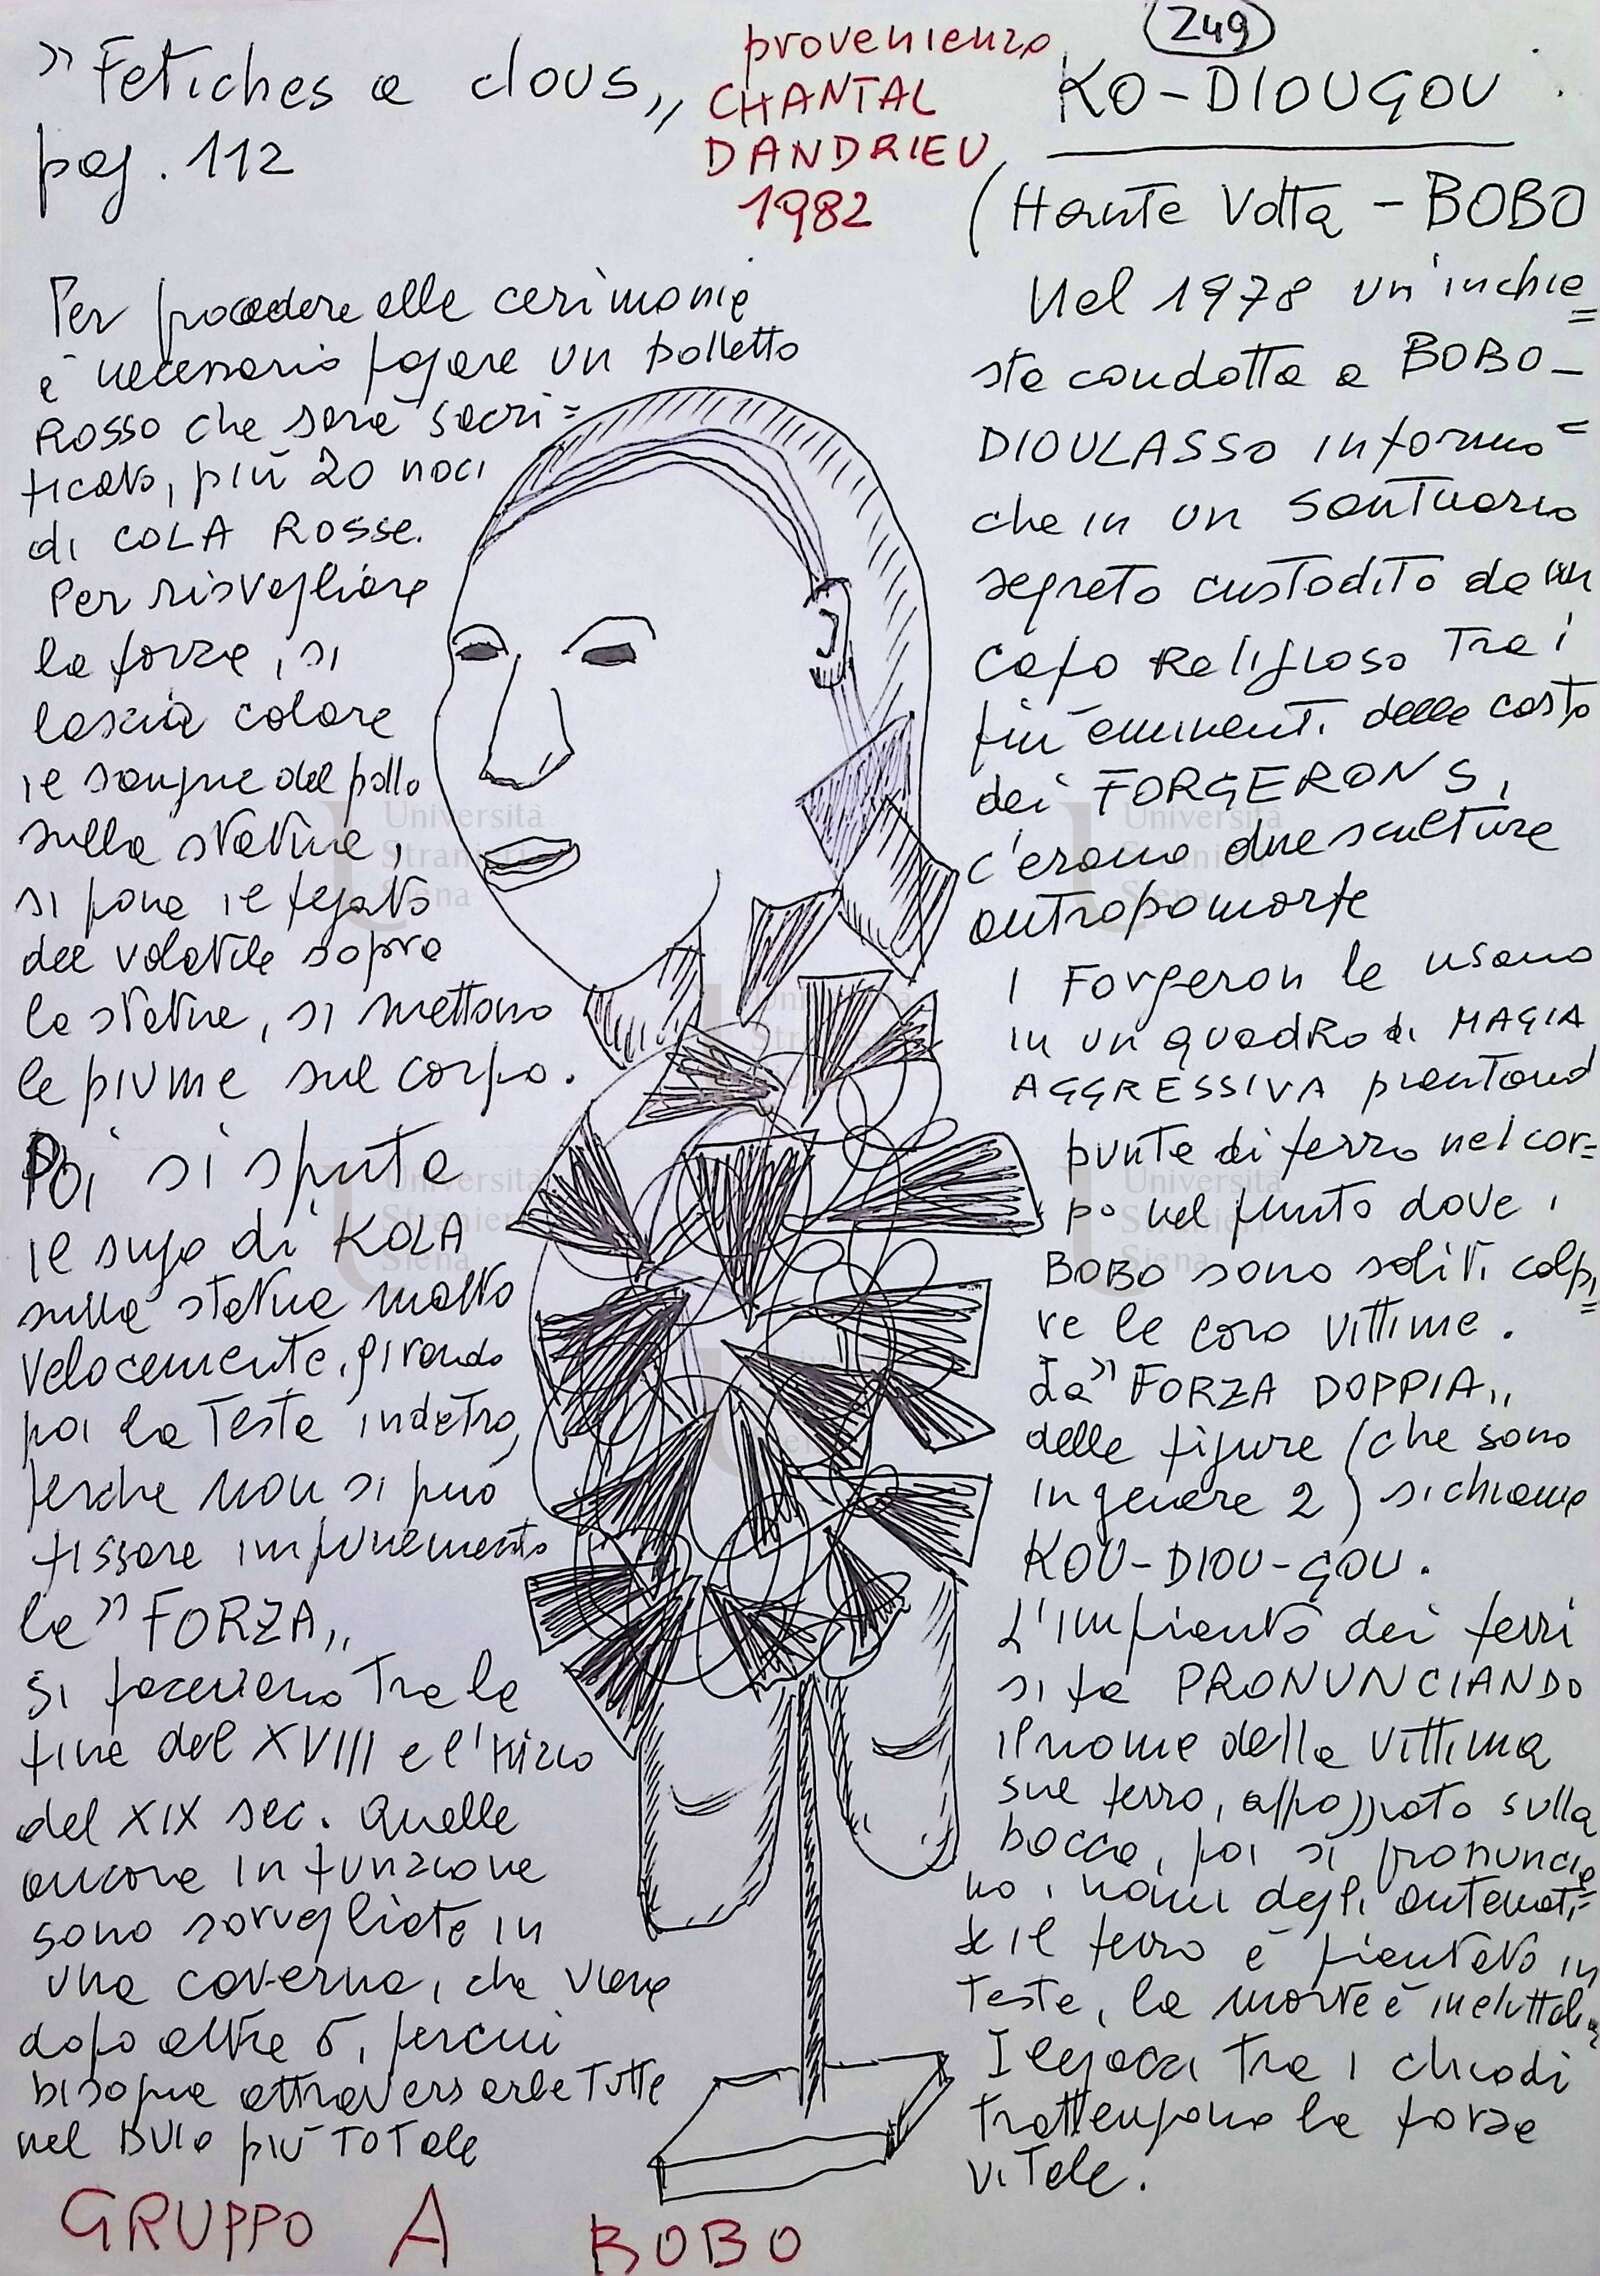 249
" Fetiches a clous "
pag. 112
provenienza
CHANTAL
DANDRIEU
1982
KO-DIOUGOU
(Haute Volta - BOBO
Nel 1978 un'inchie=
sta condotta a BOBO-
DIOULASSO informo=
che in un santuario
segreto custodito da un
capo Religioso Tra i
più eminenti della casta
dei FORGERONS,
c'erano due sculture
antropomorfe
I Forgeron le usano
in un quadro di MAGIA
AGGRESSIVA piantand
punte di ferro nel cor=
po nel punto dove i
BOBO sono soliti colpi=
re le loro vittime.
La " FORZA DOPPIA "
delle figure (che sono
in genere 2) si chiama
KOU-DIOU-GOU.
L'impianto dei ferri
si fa PRONUNCIANDO
il nome della vittima
sul ferro, appoggiato sulla
bocca, poi si pronuncia
no i nomi degli antenati,
se il ferro è piantato in
testa, la morte è
I legacci tra i chiodi
trattengono la forza
vitale.
Per procedere alle cerimonie
è necessario pagare un polletto
Rosso che sarà sacri=
ficato, più 20 noci
di COLA ROSSE.
Per risvegliare
la forza, si
lascia colare
il sangue del pollo
sulla statua,
si pone il fegato
del volatile sopra
la statua, si mettono
le piume sul corpo.
Poi si sputa
il sugo di KOLA
sulla statua molto
velocemente, girando
poi la testa indietro,
perche non si può
fissare impunemente
la " FORZA "
Si facevano tra la
fine del XVIII e l'inizio
del XIX sec. Quelle
ancora in funzione
sono sorvegliate in
una caverna, che viene
dopo altre 6, per cui
bisogna attraversarle Tutte
nel Buio più Totale
GRUPPO A BOBO
Università
Stranieri
Siena
Università
Stranieri
Siena
Università
Stranieri
Siena
Università
Stranieri
Siena